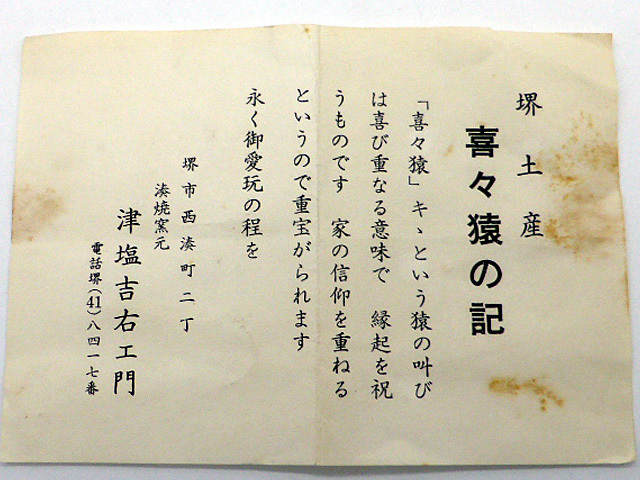 堺土産
喜々猿の記
「喜々猿」キヽという猿の叫び
は喜び重なる意味で　縁起を祝
うものです　家の信仰を重ねる
というので重宝がられます
永く御愛玩の程を
堺市西湊町二丁
湊焼窯元
津塩吉右ェ門
電話堺(41)八四一七番